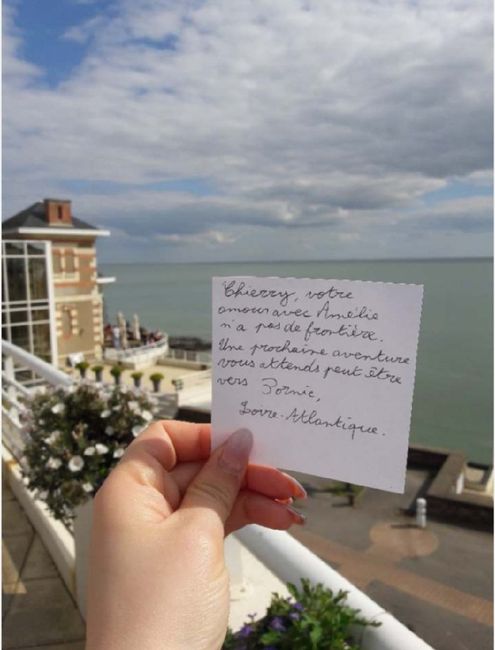 Thierry, votre
amour avec Amélie
n'a pas de frontière.
Une prochaine aventure
vous attends peut être
vers Pornic,
Loire-Atlantique.